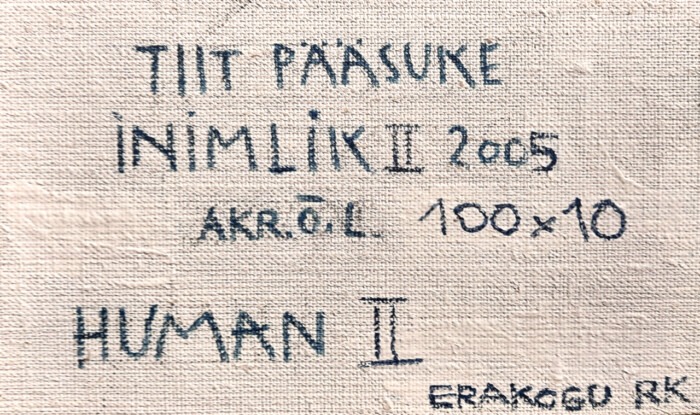 TIIT PÄÄSUKE
İNİMLİK II 2005
AKR.Õ.L. 100x10
HUMAN II
ERAKOGU RK